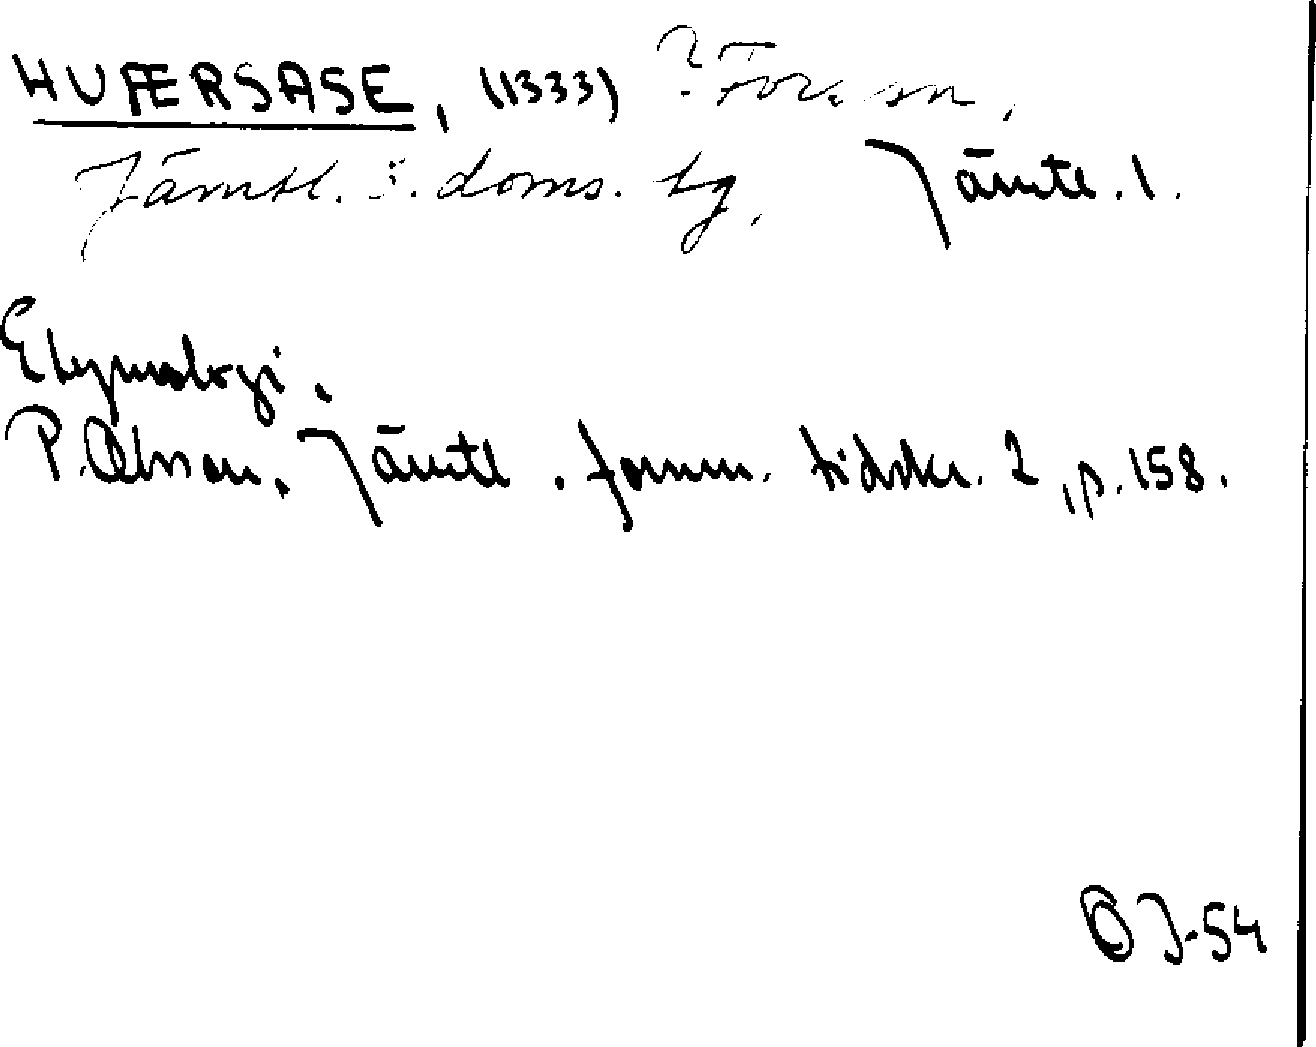 HUFÆRSASE, (1333) ? Fors sn,
Jämtl. ö. doms. tg. Jämtl. l.
Etymologi.
P. Olsson. Jämtl. fornm. tidskr. 2, p. 158.
ÖJ-54